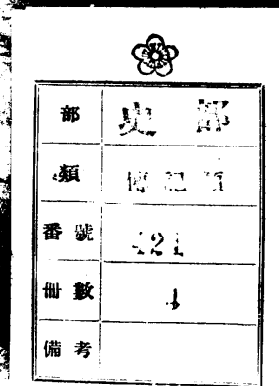 部 史部
類 傳記類
番號 421
冊數 4
備考